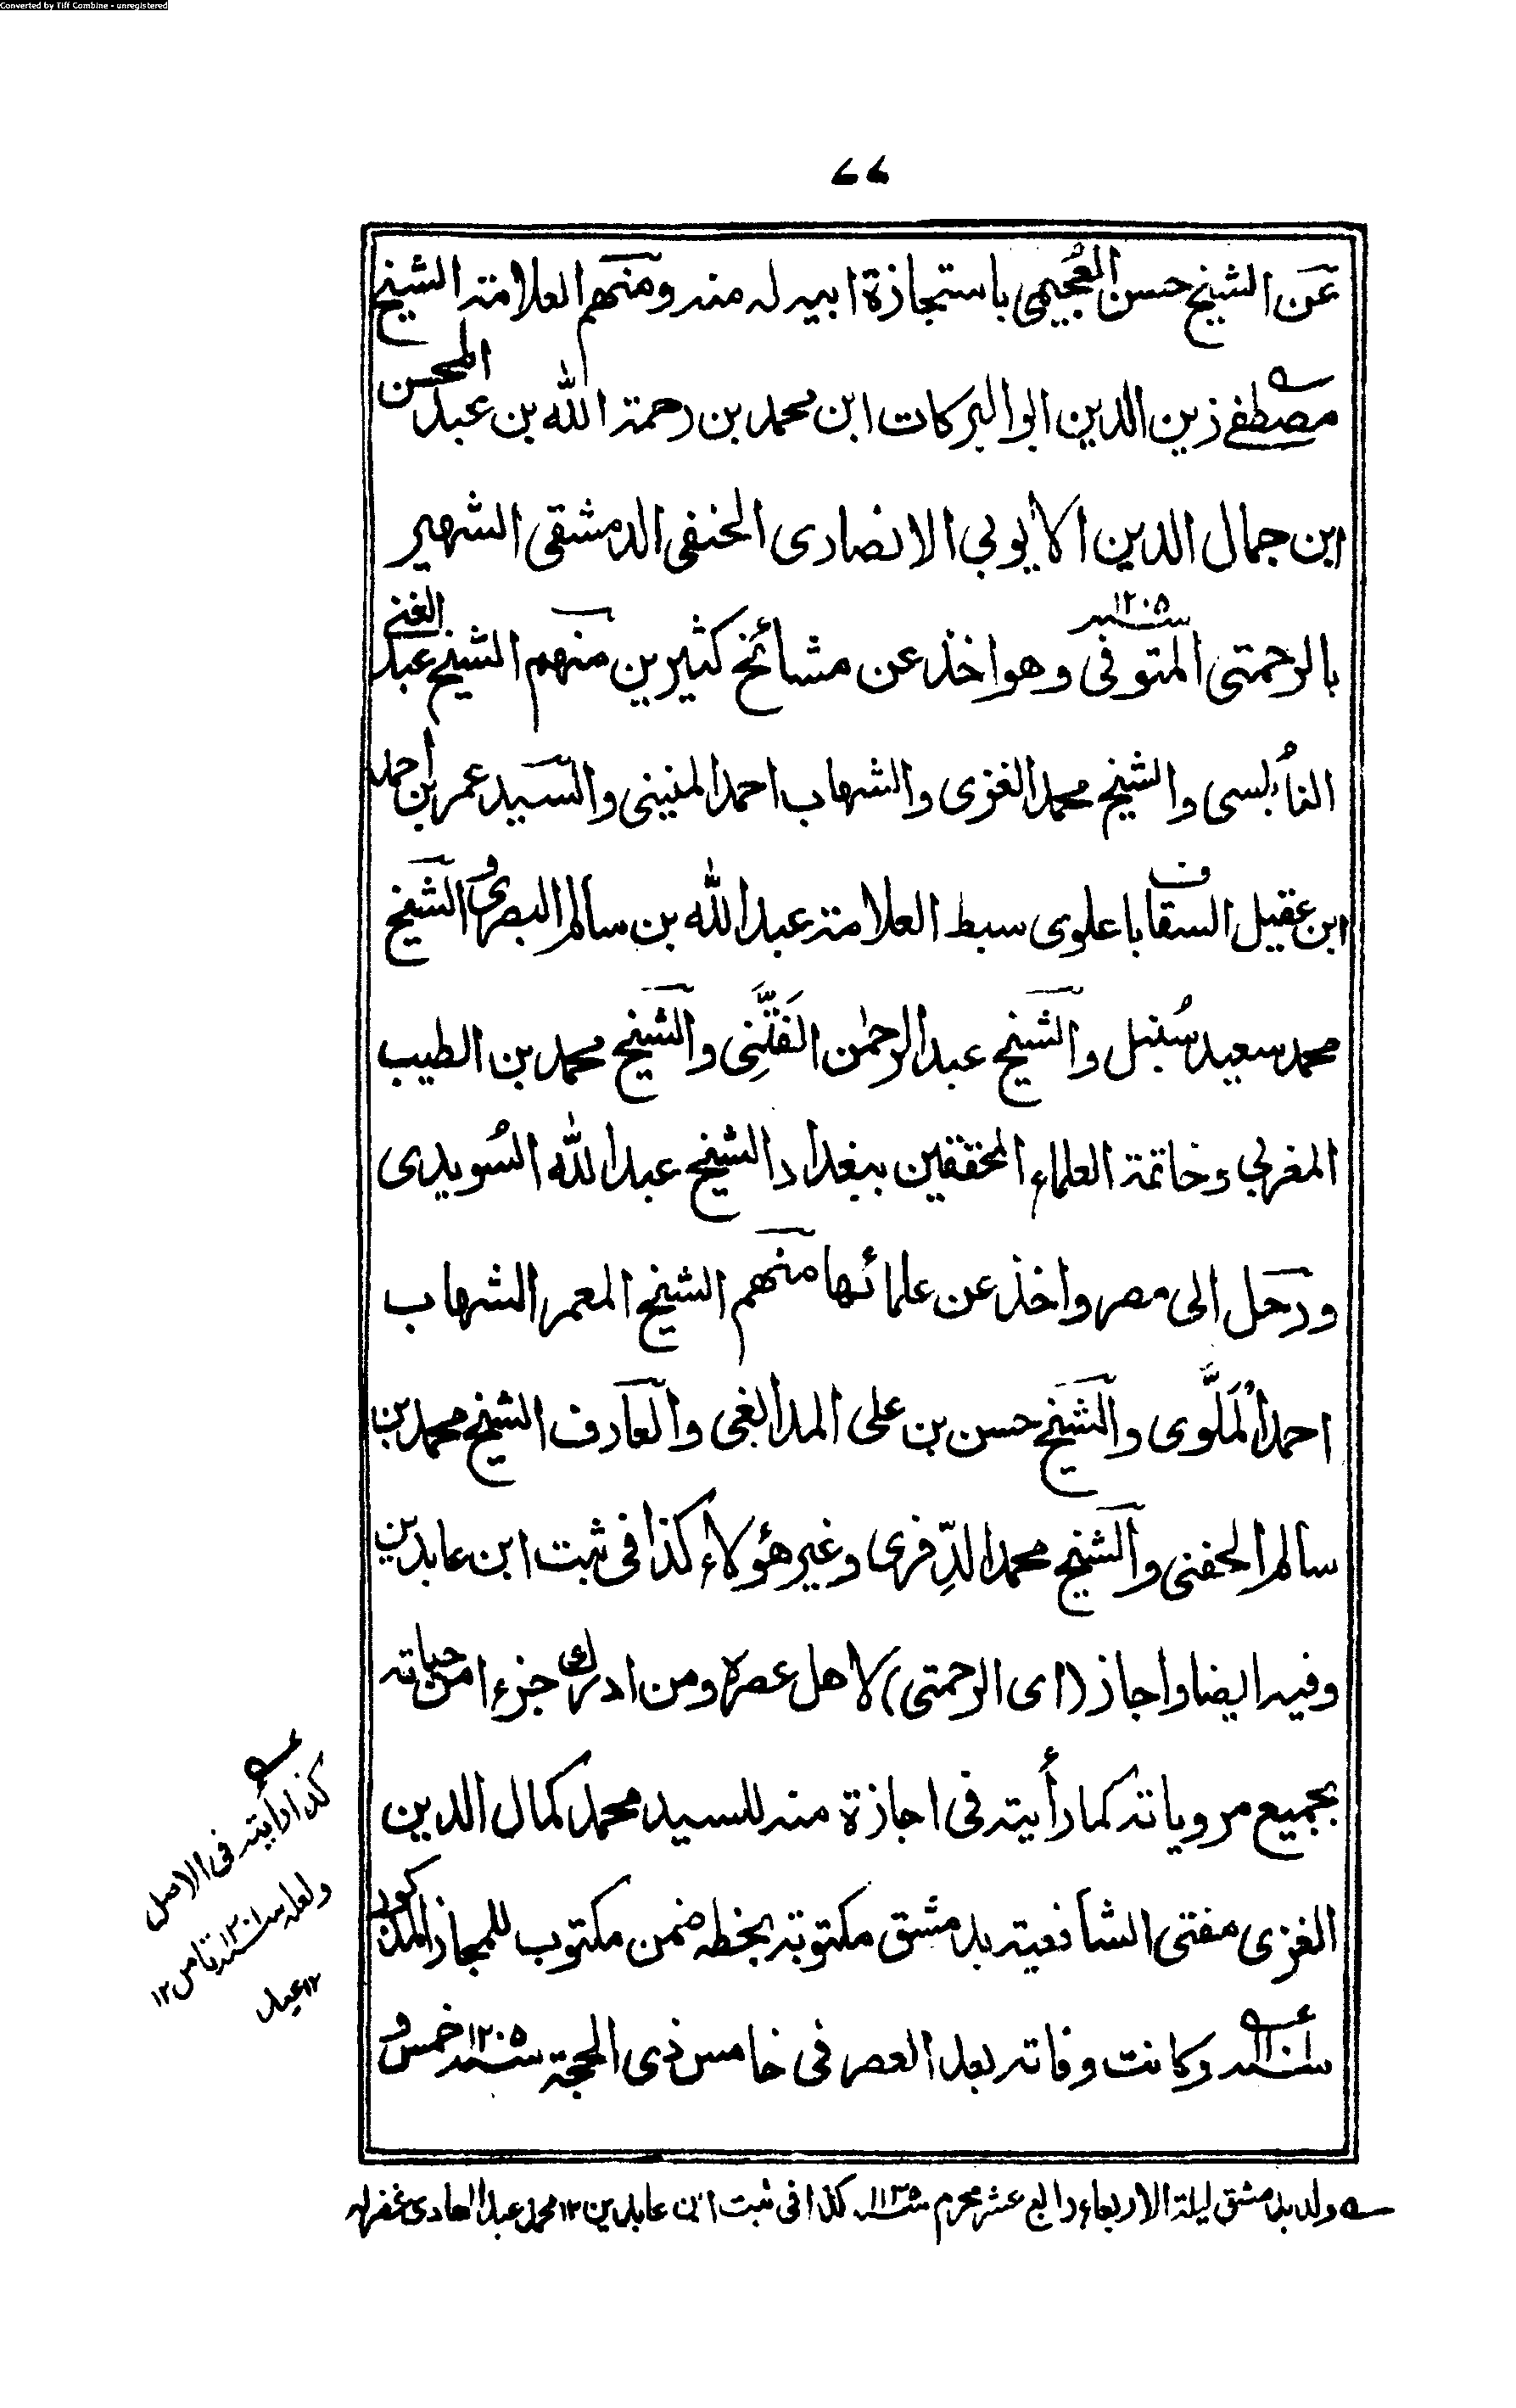 Converted by Tiff Combine - unregistered
٧٧
عن الشيخ حسن العُجيمى باستجازة ابيه له منه ومنهم العلامة الشيخ
مصطفے زين الدين ابو البركات ابن محمد بن رحمة الله بن عبد المحسن
ابن جمال الدين الايوبي الانصارى الحنفى الدمشقى الشهير
بالرحمتى المتوفى سنہ ١٢٠٥ وهو اخذ عن مشائخ كثيرين منهم الشيخ عبد الغنى
النابلسى والشيخ محمد الغزى والشهاب احمد المنينى والسيد عمر بن احمد
ابن عقيل السقاف باعلوى سبط العلامة عبد الله بن سالم البصرى والشيخ
محمد سعيد سُنبل والشيخ عبد الرحمٰن الفَتَّنِى والشيخ محمد بن الطيب
المغربي وخاتمة العلماء المحققين ببغداد الشيخ عبد الله السُويدى
ورحل الى مصر واخذ عن علمائها منهم الشيخ المعمر الشهاب
احمد المَلَّوى والشيخ حسن بن على المدابغى والعارف الشيخ محمد بن
سالم الحفنى والشيخ محمد الدِّفرى وغير هؤلاء كذا فى ثبت ابن عابدين
وفيه ايضا واجاز (اى الرحمتى) لاهل عصره ومن ادرك جزءا من حياته
بجميع مروياته كما رأيته فى اجازة منه للسيد محمد كمال الدين
الغزى مفتى الشافعية بدمشق مكتوبة بخطه ضمن مكتوب للمجاز المذكور
وكانت وفاته بعد العصر فى خامس ذى الحجة سنہ ١٢٠٥ خمس و
كذا رأيته فى الاصل
ولعله
١٢ عبد
ولد بدمشق ليلة الاربعاء رابع عشر محرم سنہ ١١٣٥ كذا فى ثبت ابن عابدين ١٢ محمد عبد الهادى غفر له